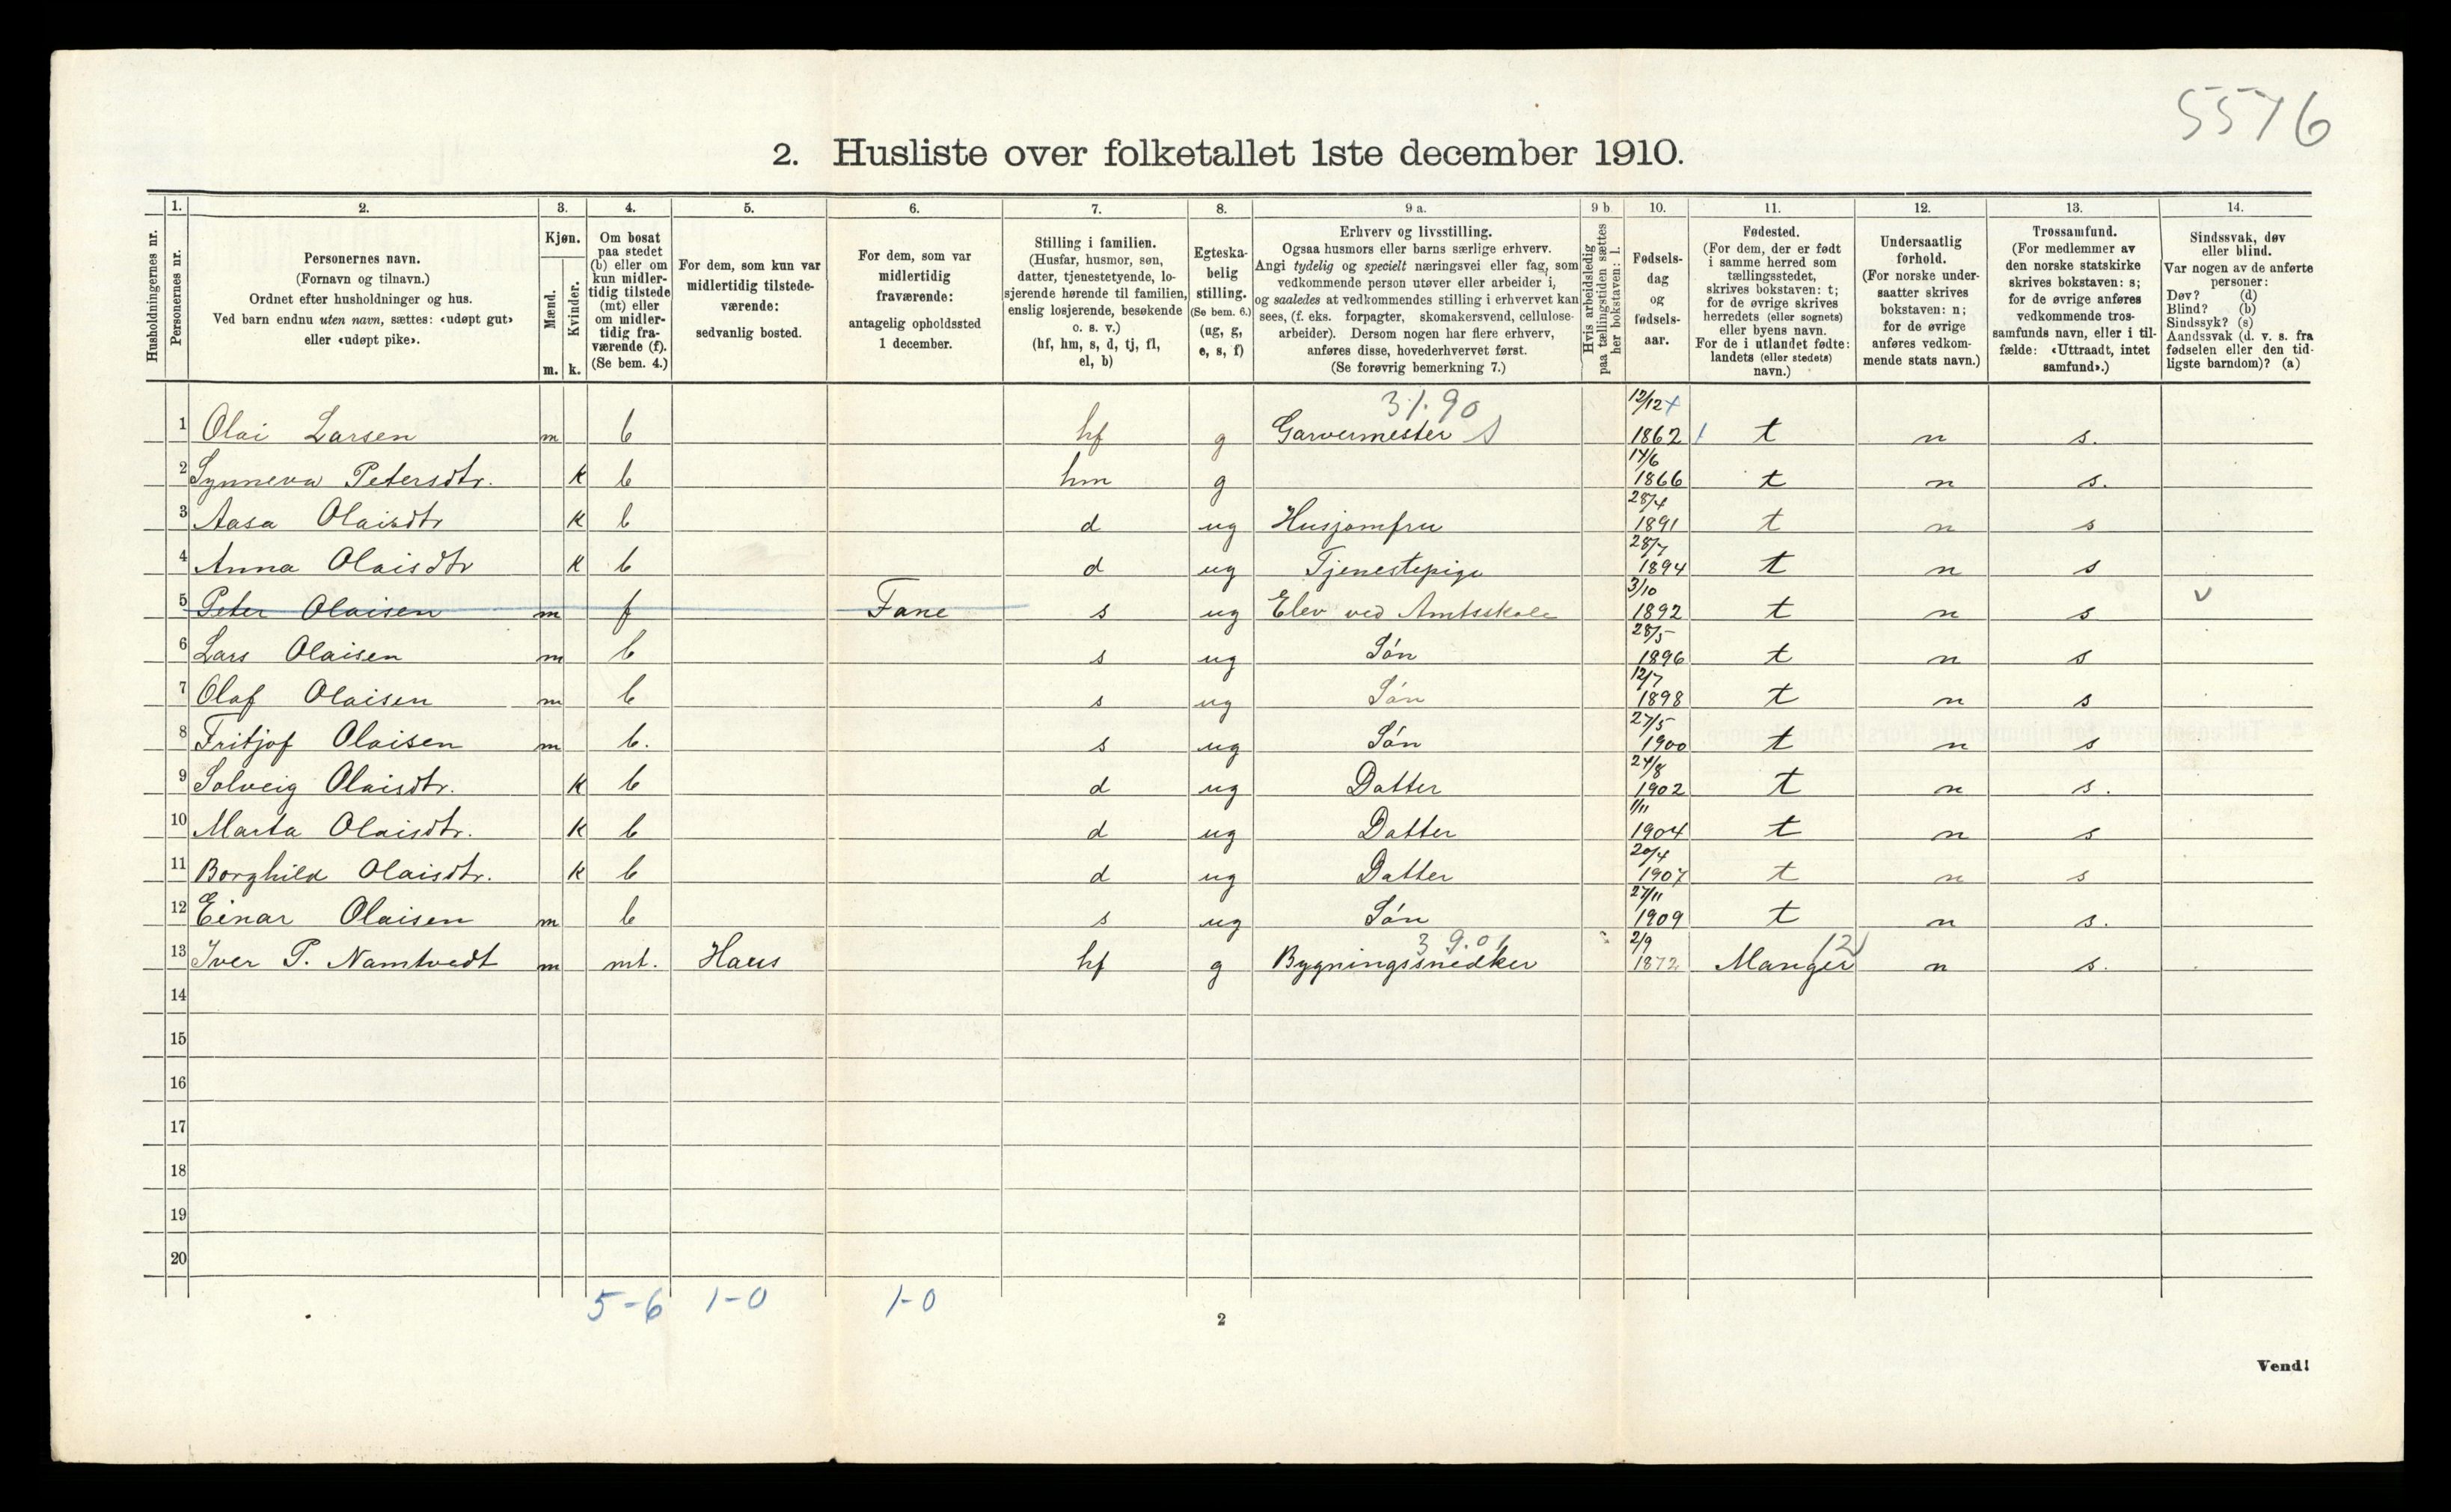 5576
2. Husliste over folketallet 1ste december 1910.
1. 2. 3. 4. 5. 6. 7. 8. 9 a. 9 b 10. 11. 12. 13. 14.
Husholdningernes nr.
Personernes nr.
Personernes navn.
(Fornavn og tilnavn.)
Ordnet efter husholdninger og hus.
Ved barn endnu uten navn, sættes: «udøpt gut»
eller «udøpt pike».
Kjøn.
Mænd.
Kvinder.
m. k.
Om bosat
paa stedet
(b) eller om
kun midler-
tidig tilstede
(mt) eller
om midler-
tidig fra-
værende (f).
(Se bem. 4.)
For dem, som kun var
midlertidig tilstede-
værende:
sedvanlig bosted.
For dem, som var
midlertidig
fraværende:
antagelig opholdssted
1 december.
Stilling i familien.
(Husfar, husmor, søn,
datter, tjenestetyende, lo-
sjerende hørende til familien,
enslig losjerende, besøkende
o. s. v.)
(hf, hm, s, d, tj, fl,
el, b)
Egteska-
belig
stilling.
(Se bem. 6.)
(ug, g,
e, s, f)
Erhverv og livsstilling.
Ogsaa husmors eller barns særlige erhverv.
Angi tydelig og specielt næringsvei eller fag, som
vedkommende person utøver eller arbeider i,
og saaledes at vedkommendes stilling i erhvervet kan
sees, (f. eks. forpagter, skomakersvend, cellulose-
arbeider). Dersom nogen har flere erhverv,
anføres disse, hovederhvervet først.
(Se forøvrig bemerkning 7.)
Hvis arbeidsledig
paa tællingstiden sættes
her bokstaven: l.
Fødsels-
dag
og
fødsels-
aar.
Fødested.
(For dem, der er født
i samme herred som
tællingsstedet,
skrives bokstaven: t;
for de øvrige skrives
herredets (eller sognets)
eller byens navn.
For de i utlandet fødte:
landets (eller stedets)
navn.)
Undersaatlig
forhold.
(For norske under-
saatter skrives
bokstaven: n;
for de øvrige
anføres vedkom-
mende stats navn.)
Trossamfund.
(For medlemmer av
den norske statskirke
skrives bokstaven: s;
for de øvrige anføres
vedkommende tros-
samfunds navn, eller i til-
fælde: «Uttraadt, intet
samfund».)
Sindssvak, døv
eller blind.
Var nogen av de anførte
personer:
Døv? (d)
Blind? (b)
Sindssyk? (s)
Aandssvak (d. v. s. fra
fødselen eller den tid-
ligste barndom)? (a)
31.90
1 Olai Larsen m b hf g Garvermester 12/12 1862 t n s.
2 Synneva Petersdtr. k b hm g 14/6 1866 t n s.
3 Aasa Olaisdtr k b d ug Husjomfru 28/4 1891 t n s
4 Anna Olaisdtr k b d ug Tjenestepige 28/7 1894 t n s
5 Peter Olaisen m f Fane s ug Elev ved Amtsskole 3/10 1892 t n s v
6 Lars Olaisen m b s ug Søn 28/5 1896 t n s
7 Olaf Olaisen m b s ug Søn 12/7 1898 t n s
8 Fritjof Olaisen m b. s ug Søn 27/5 1900 t n s
9 Solveig Olaisdtr. k b d ug Datter 24/8 1902 t n s.
10 Marta Olaisdtr. k b d ug Datter 1/11 1904 t n s
11 Borghild Olaisdtr. k b d ug Datter 20/4 1907 t n s
12 Einar Olaisen m b s ug Søn 27/11 1909 t n s.
39.01 12
13 Iver P. Namtvedt m mt. Haus hf g Bygningssnedker 2/9 1872 Manger n s.
14
15
16
17
18
19
20
5-6 1-0 1-0
2
Vend!